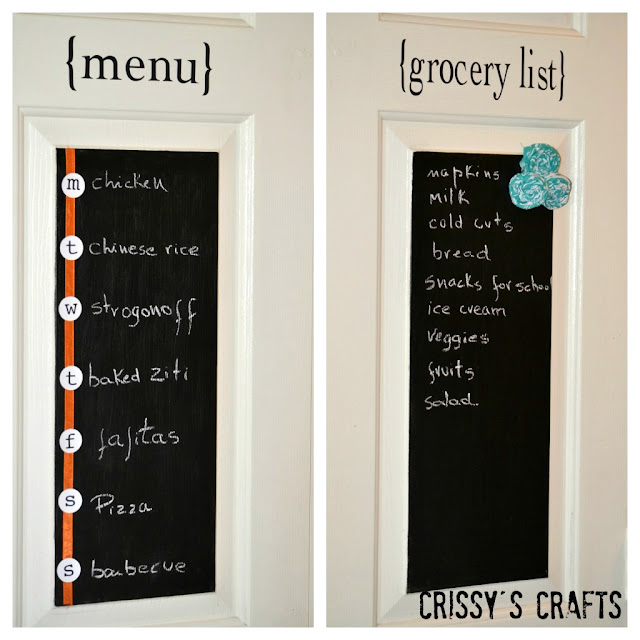 {menu}
m chicken
t chinese rice
w strogonoff
t baked ziti
f fajitas
s Pizza
s barbecue
{grocery list}
napkins
milk
cold cuts
bread
snacks for school
ice cream
veggies
fruits
salad.
CRISSY'S CRAFTS